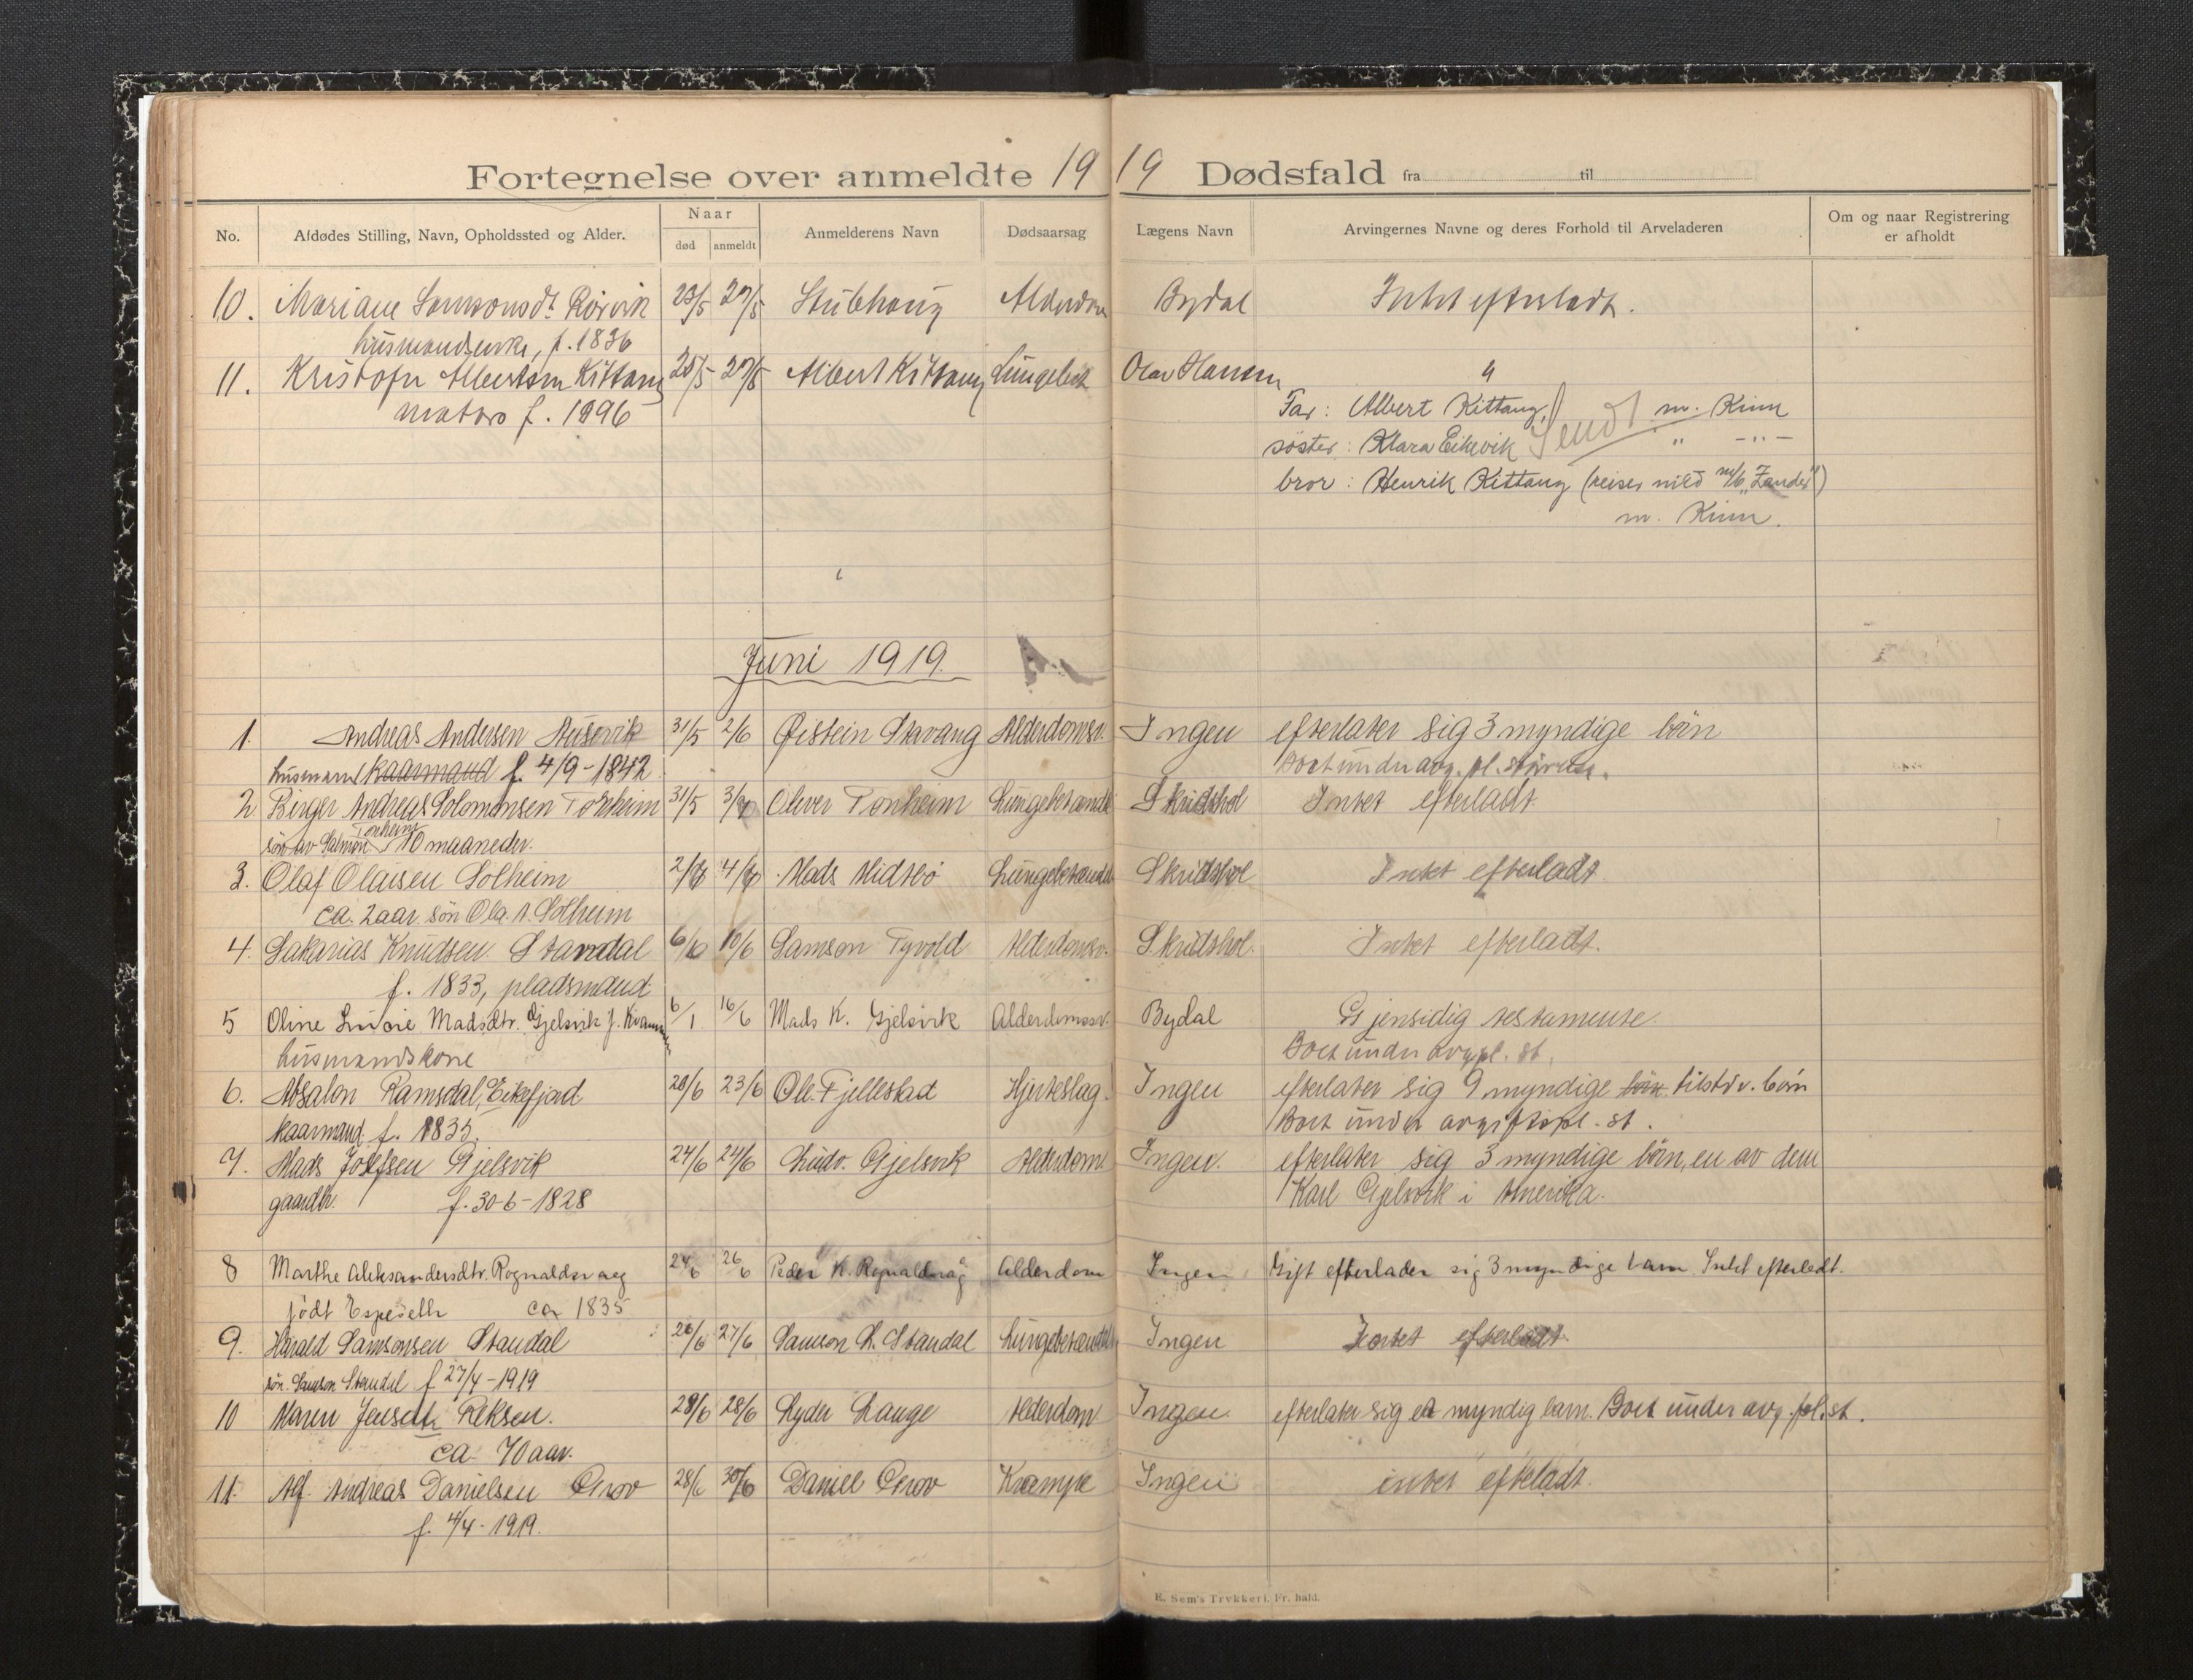 Fortegnelse over anmeldte 1919 Dødsfald fra til
No. Afdødes Stilling, Navn, Opholdssted og Alder. Naar død anmeldt Anmelderens Navn Dødsaarsag Lægens Navn Arvingernes Navne og deres Forhold til Arveladeren Om og naar Registrering er afholdt
10. Mariane Samsonsdt. Rörvik 23/5 27/5 Stubhaug Alderdom Bydal Intet efterladt.
husmandsenke, f. 1836
11. Kristofer Albertsen Kittang 25/5 27/5 Albert Kittang Lungebet Olav Hansen "
matros f. 1896
Far: Albert Kittang, m. Kinn
söster: Klara Eikevik Sendt " -"-
bror: Henrik Kittang (reiser med m/b "Zander")
m. Kinn.
Juni 1919.
1. Andreas Andersen Ausevik 31/5 2/6 Øistein Stavang Alderdomsv. Ingen efterlater sig 3 myndige börn
husmand kaarmand f. 4/9-1842 Boet under avg. pl. större.
2 Birger Andreas Solomonsen Tonheim 31/5 3/6 Oliver Tonheim Lungebetændt Skridshol Intet efterladt
sön av Salmon Tonheim 10 maaneder.
3. Olaf Olaisen Solheim 2/6 4/6 Mads Midtbö Lungebetændt Skridshol Intet efterladt
ca. 2 aar. sön Ola. A. Solheim
4. Sakarias Knudsen Standal 6/6 10/6 Samson Tyvold Alderdomsv. Skridshol. Intet efterladt.
f. 1833, pladsmand
5 Oline Lucie Madsdtr. Gjelsvik f. Kvamm 6/1 16/6 Mads K. Gjelsvik Alderdomssv. Bydal Gjensidig testamente.
husmandskone Boet under avgpl. st.
6. Absalon Ramsdal, Eikefjord 20/6 23/6 Ole Fjellestad Hjerteslag. Ingen efterlater sig 9 myndige börn tilstdv. börn
kaarmand f. 1835. Boet under avgiftspl. st.
7. Mads Josefsen Gjelsvik 24/6 24/6 Ludv. Gjelsvik Alderdoms Ingen. efterlater sig 3 myndige börn, en av dem
gaardbr. f. 30-6-1828 Karl Gjelsvik i Amerika.
8 Marthe Aleksandersdtr. Rognaldsvaag 24/6 26/6 Peder K. Rognaldsvåg Alderdom Ingen Gift efterlader sig 3 myndige barn Intet efterladt.
födt Espeseth ca 1835
9. Harald Samsonsen Standal 26/6 27/6 Samson L. Standal Lungebetændt Ingen Intet efterladt
sön. Samson Standal f 27/4-1919
10 Maren Jensdtr. Reksen. 28/6 28/6 Lyder Lange Alderdom Ingen. efterlater sig et myndig barn. Boet under avg. pl. st.
ca. 70 aar.
11. Alf Andreas Danielsen Grov 28/6 30/6 Daniel Grov Krampe Ingen intet efterladt.
f. 4/4-1919.
E. Sem's Trykkeri. Fr. hald.